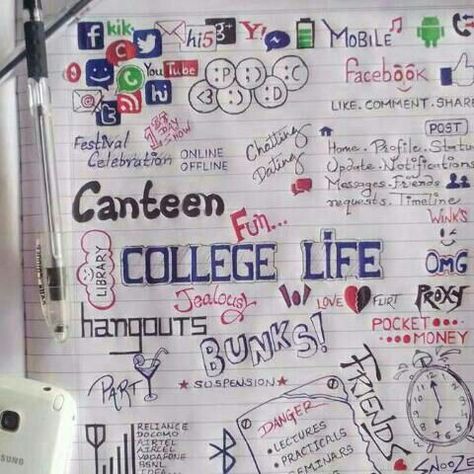 kik
hi5
g+
Y!
MOBILE
f
YouTube
hi
t
Facebook
LIKE. COMMENT. SHARE
1st DAY SHOW
Festival Celebration
ONLINE
OFFLINE
Chatting
Dating
POST
Home. Profile. Status
Update. Notifications
Messages. friends
requests. Timeline
Canteen
Fun...
WINKS
LIBRARY
COLLEGE LIFE
OMG
Jealousy
LOVE
FLIRT
PROXY
hangouts
BUNKS!
POCKET
MONEY
PARTY
SUSPENSION
FRIENDS
DANGER
LECTURES
PRACTICALS
SEMINARS
RELIANCE
DOCOMO
AIRTEL
AIRCEL
VODAFONE
BSNL
IDEA
SAMSUNG